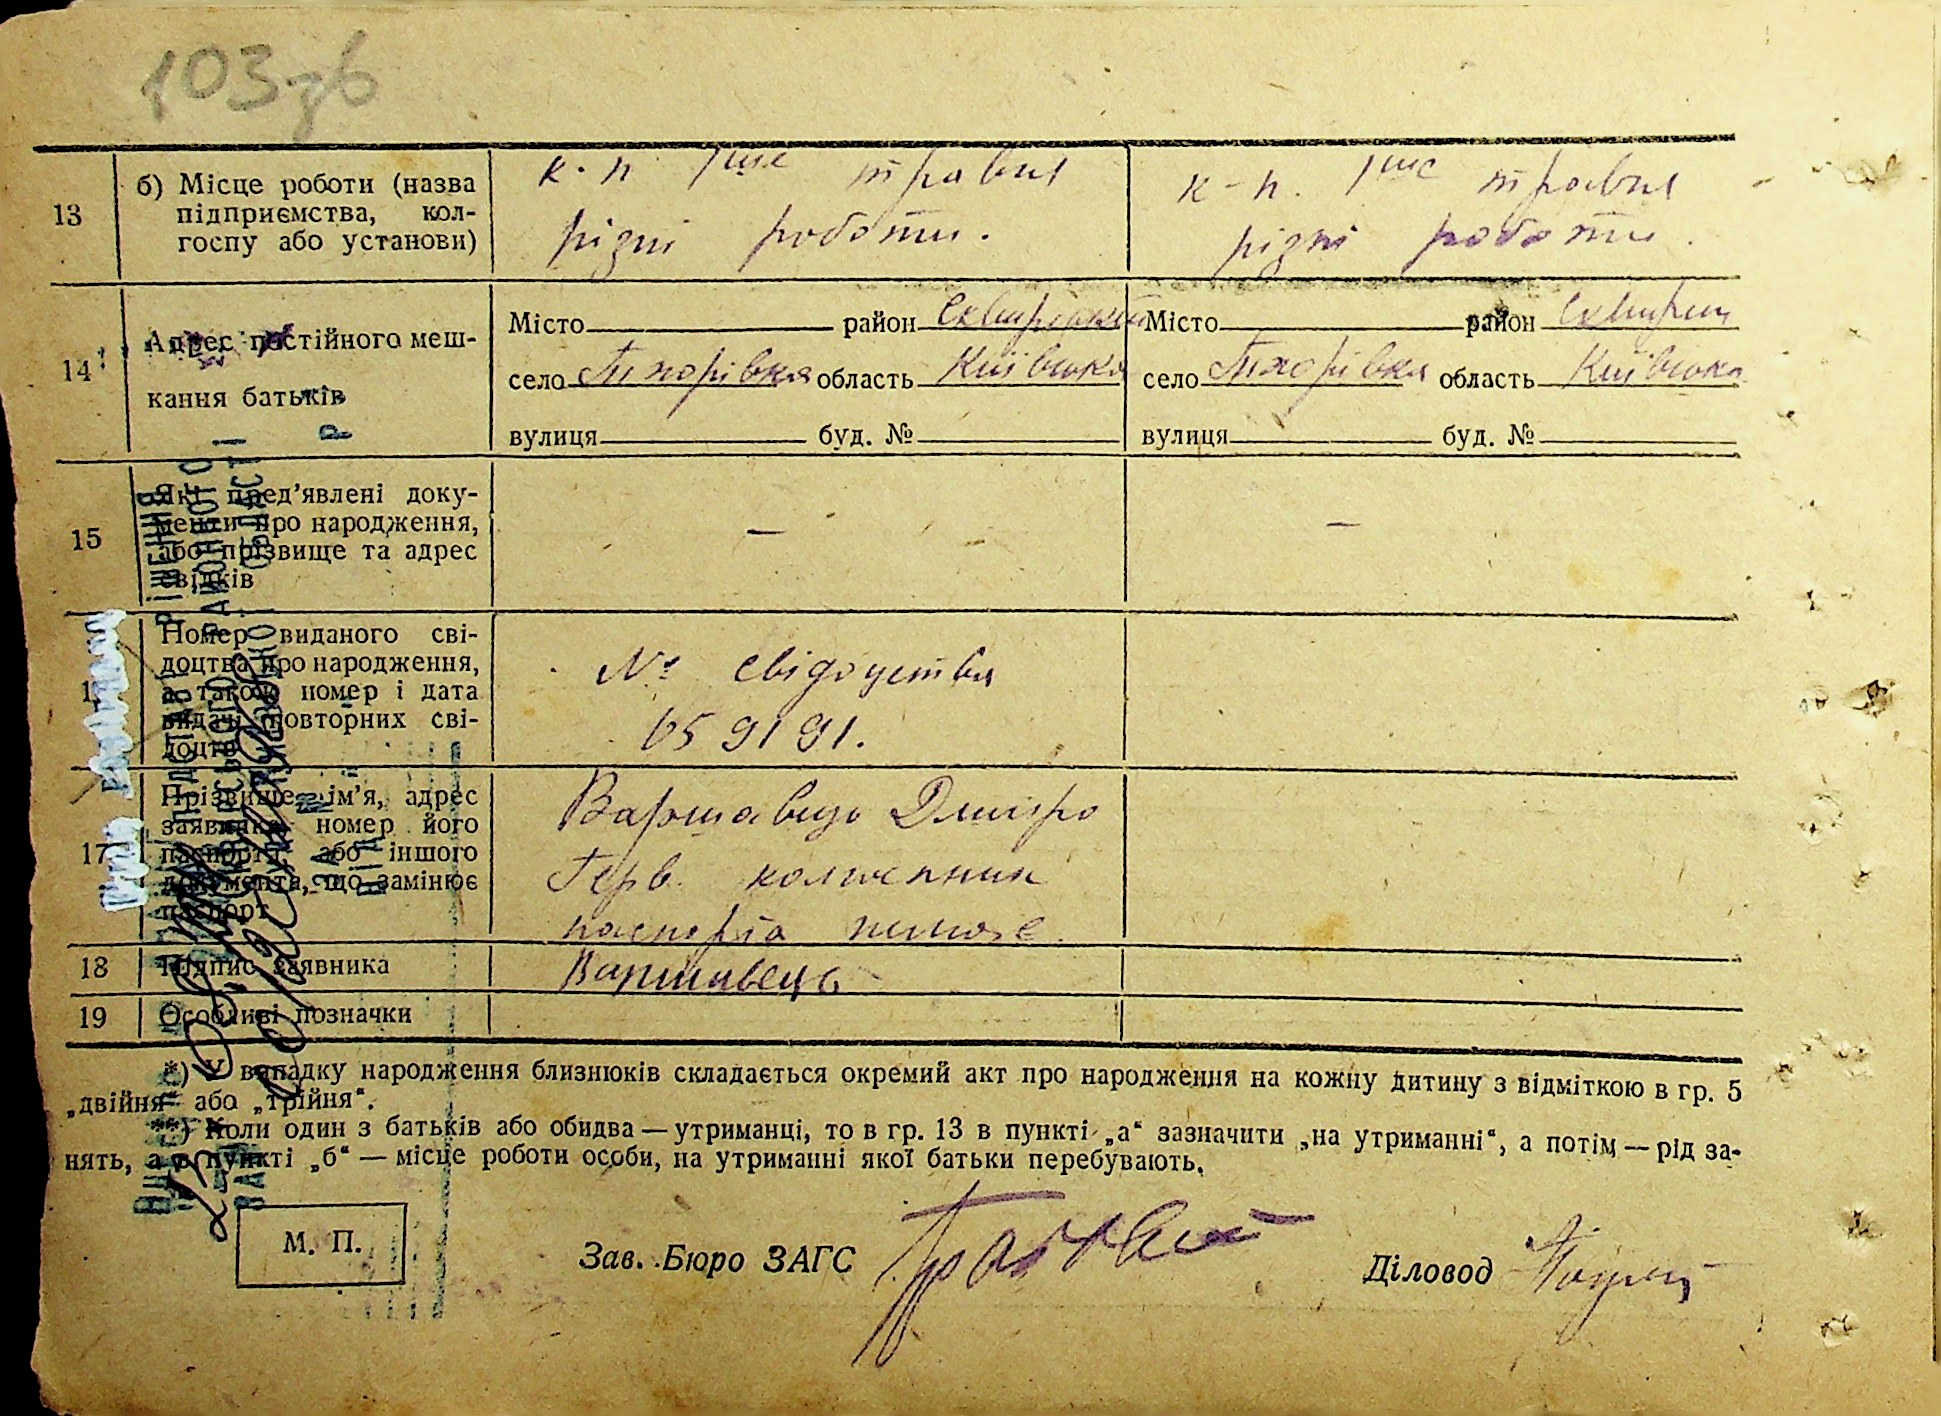 103зв
13
б) Місце роботи (назва
підприємства, кол-
госпу або установи)
к-п 1ше травня
різні роботи.
к-п. 1ше травня
різні роботи.
14
Адрес постійного меш-
кання батьків
Місто район Сквирський
село Тихорівка область Київська
вулиця буд. №
Місто район Сквирськ
село Тихорівка область Київська
вулиця буд. №
15
Які пред’явлені доку-
менти про народження,
або прізвище та адрес
свідків
—
—
Номер виданого сві-
доцтва про народження,
а також номер і дата
видачі повторних сві-
доцтв
№ свідоцтва
059191.
17
Прізвище, ім’я, адрес
заявника, номер його
паспорта, або іншого
документа, що замінює
паспорт
Варшавець Дмитро
колгоспник
паспорта немає
18
Підпис заявника
Варшавець
19
Особливі позначки
*) У випадку народження близнюків складається окремий акт про народження на кожну дитину з відміткою в гр. 5
„двійня“ або „трійня“.
**) Коли один з батьків або обидва — утриманці, то в гр. 13 в пункті „а“ зазначити „на утриманні“, а потім — рід за-
нять, а в пункті „б“ — місце роботи особи, на утриманні якої батьки перебувають.
М. П.
Зав. Бюро ЗАГС
Діловод